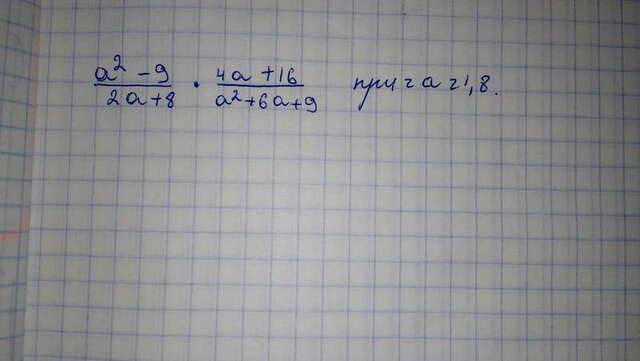 a² - 9 / 2a + 8 · 4a + 16 / a² + 6a + 9 при a = 1,8.